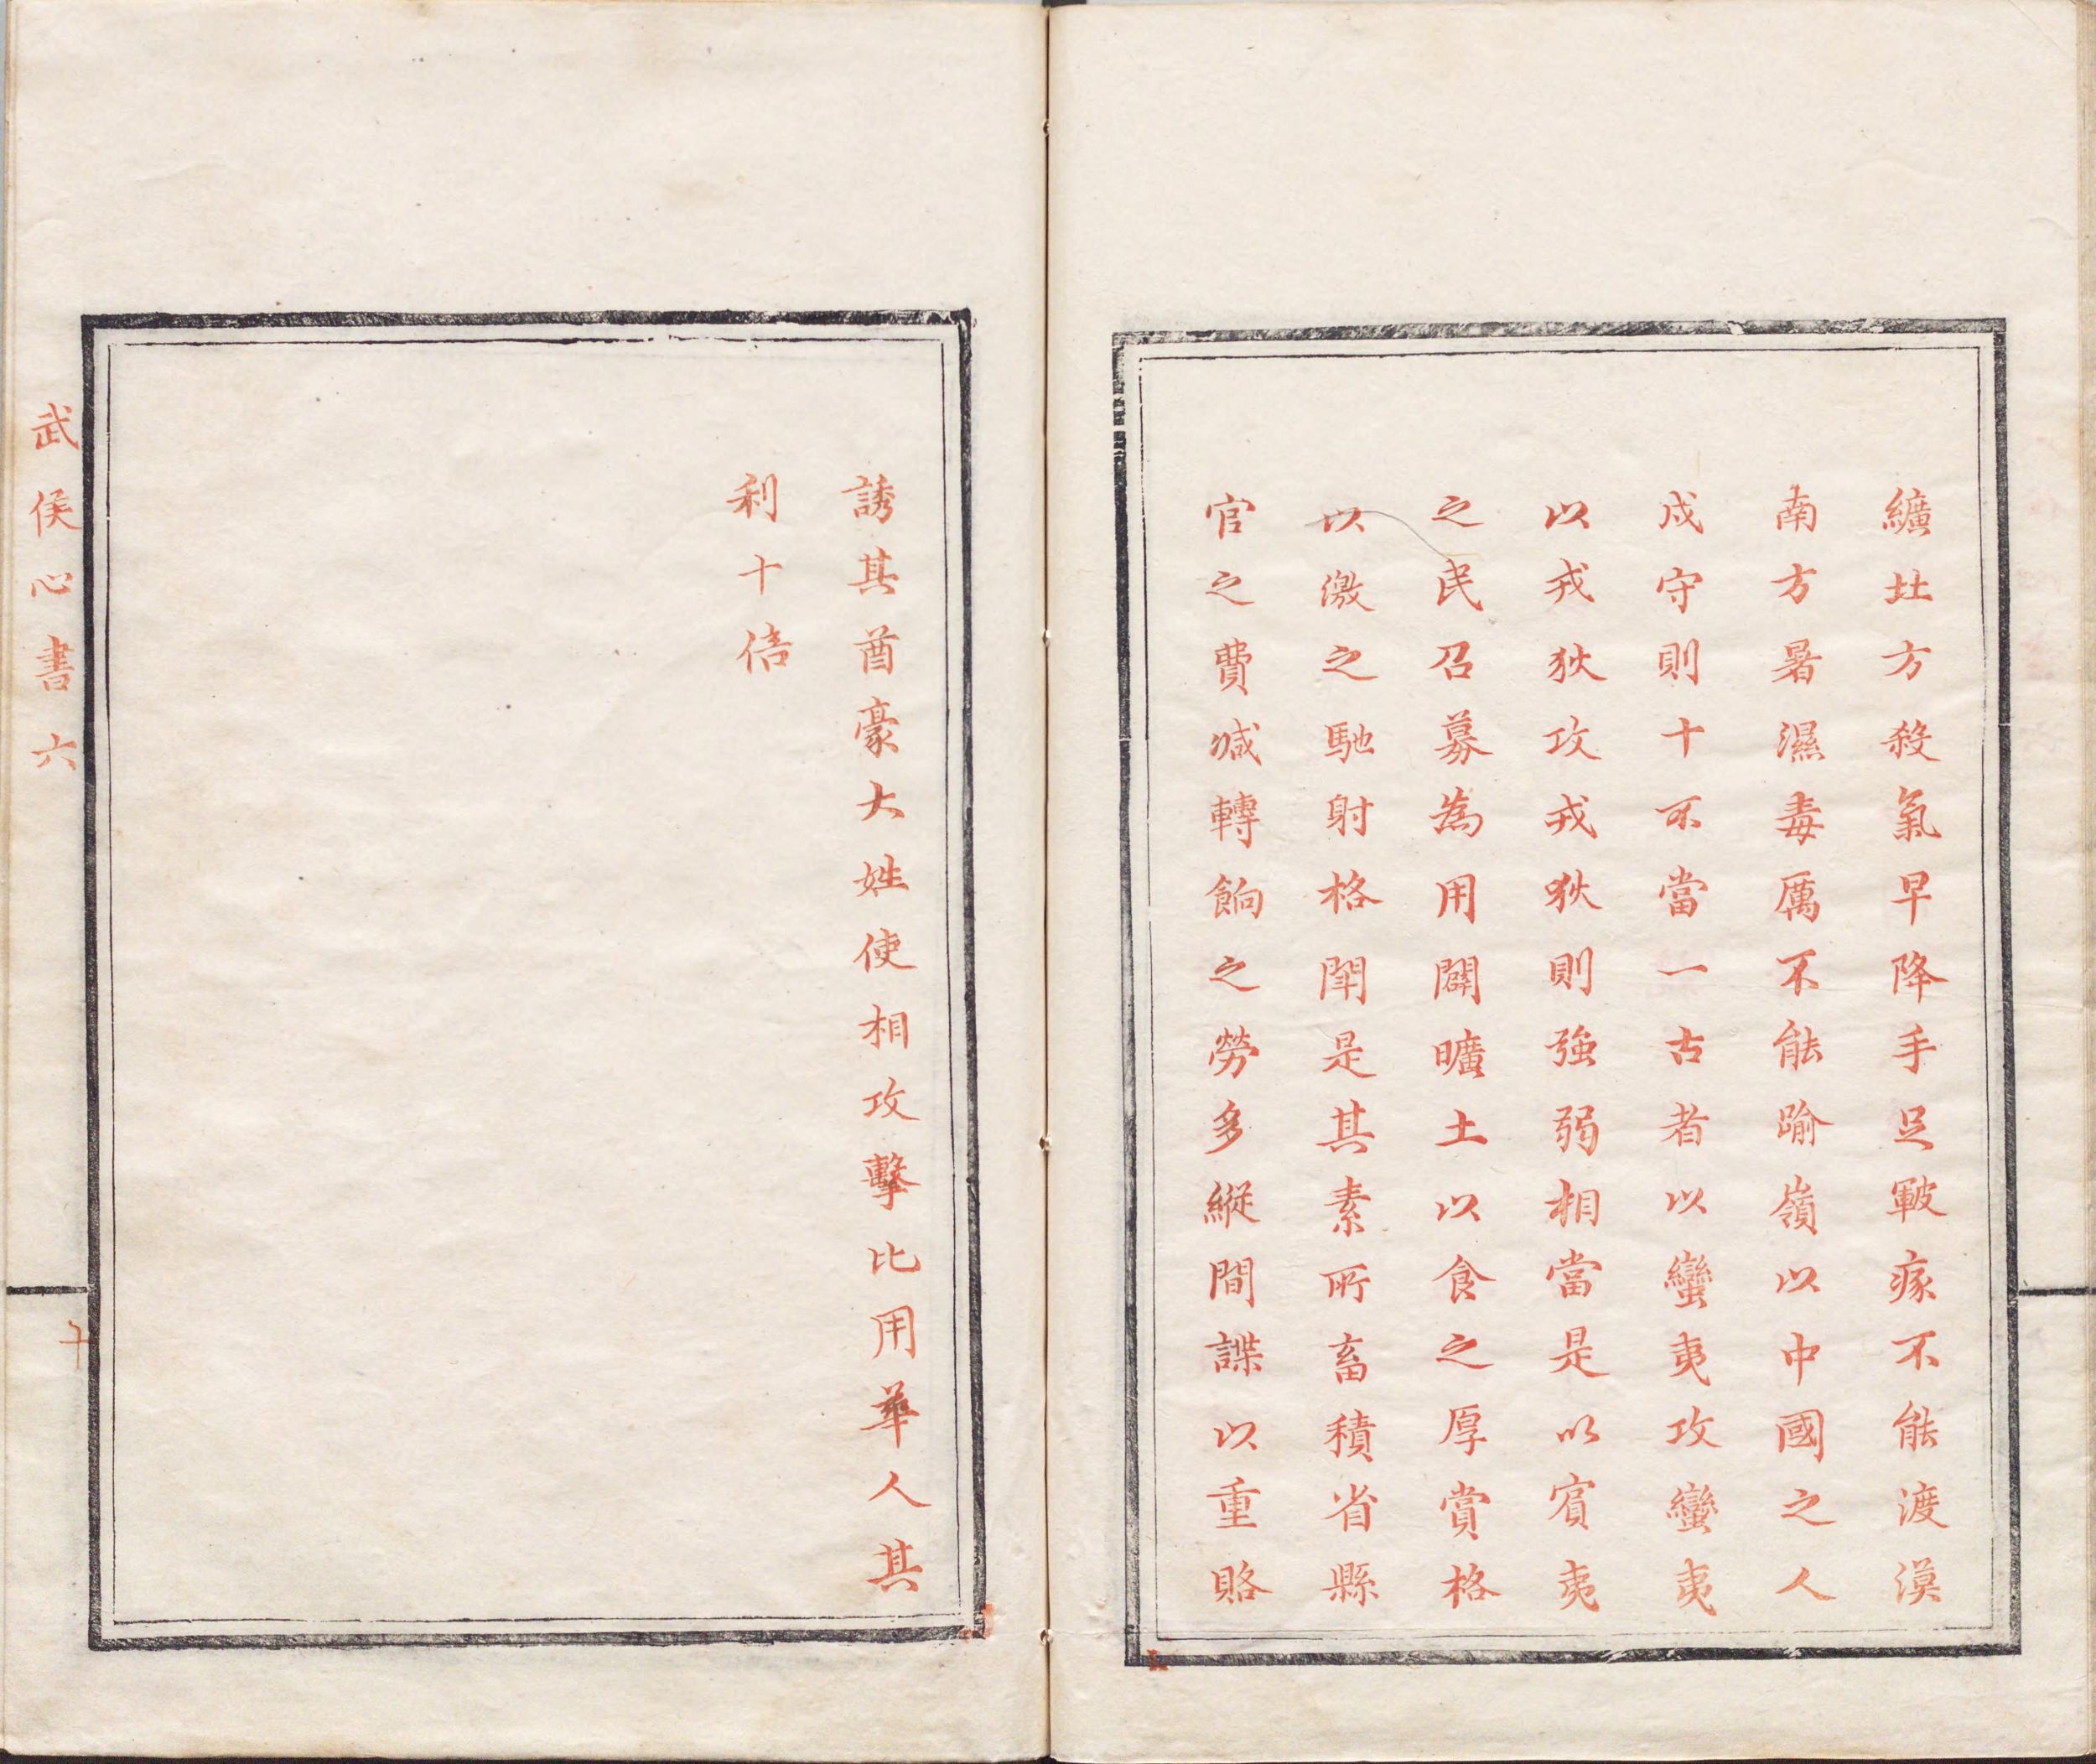 纊北方殺氣早降手足皸瘃不能渡漠
南方暑濕毒厲不能踰嶺以中國之人
戍守則十不當一古者以蠻夷攻蠻夷
以戎狄攻戎狄則強弱相當是以賓夷
之民召募為用闢曠土以食之厚賞格
以激之馳射格鬪是其素所畜積省縣
官之費減轉餉之勞多縱間諜以重賂
誘其酋豪大姓使相攻擊比用華人其
利十倍
武侯心書六
十